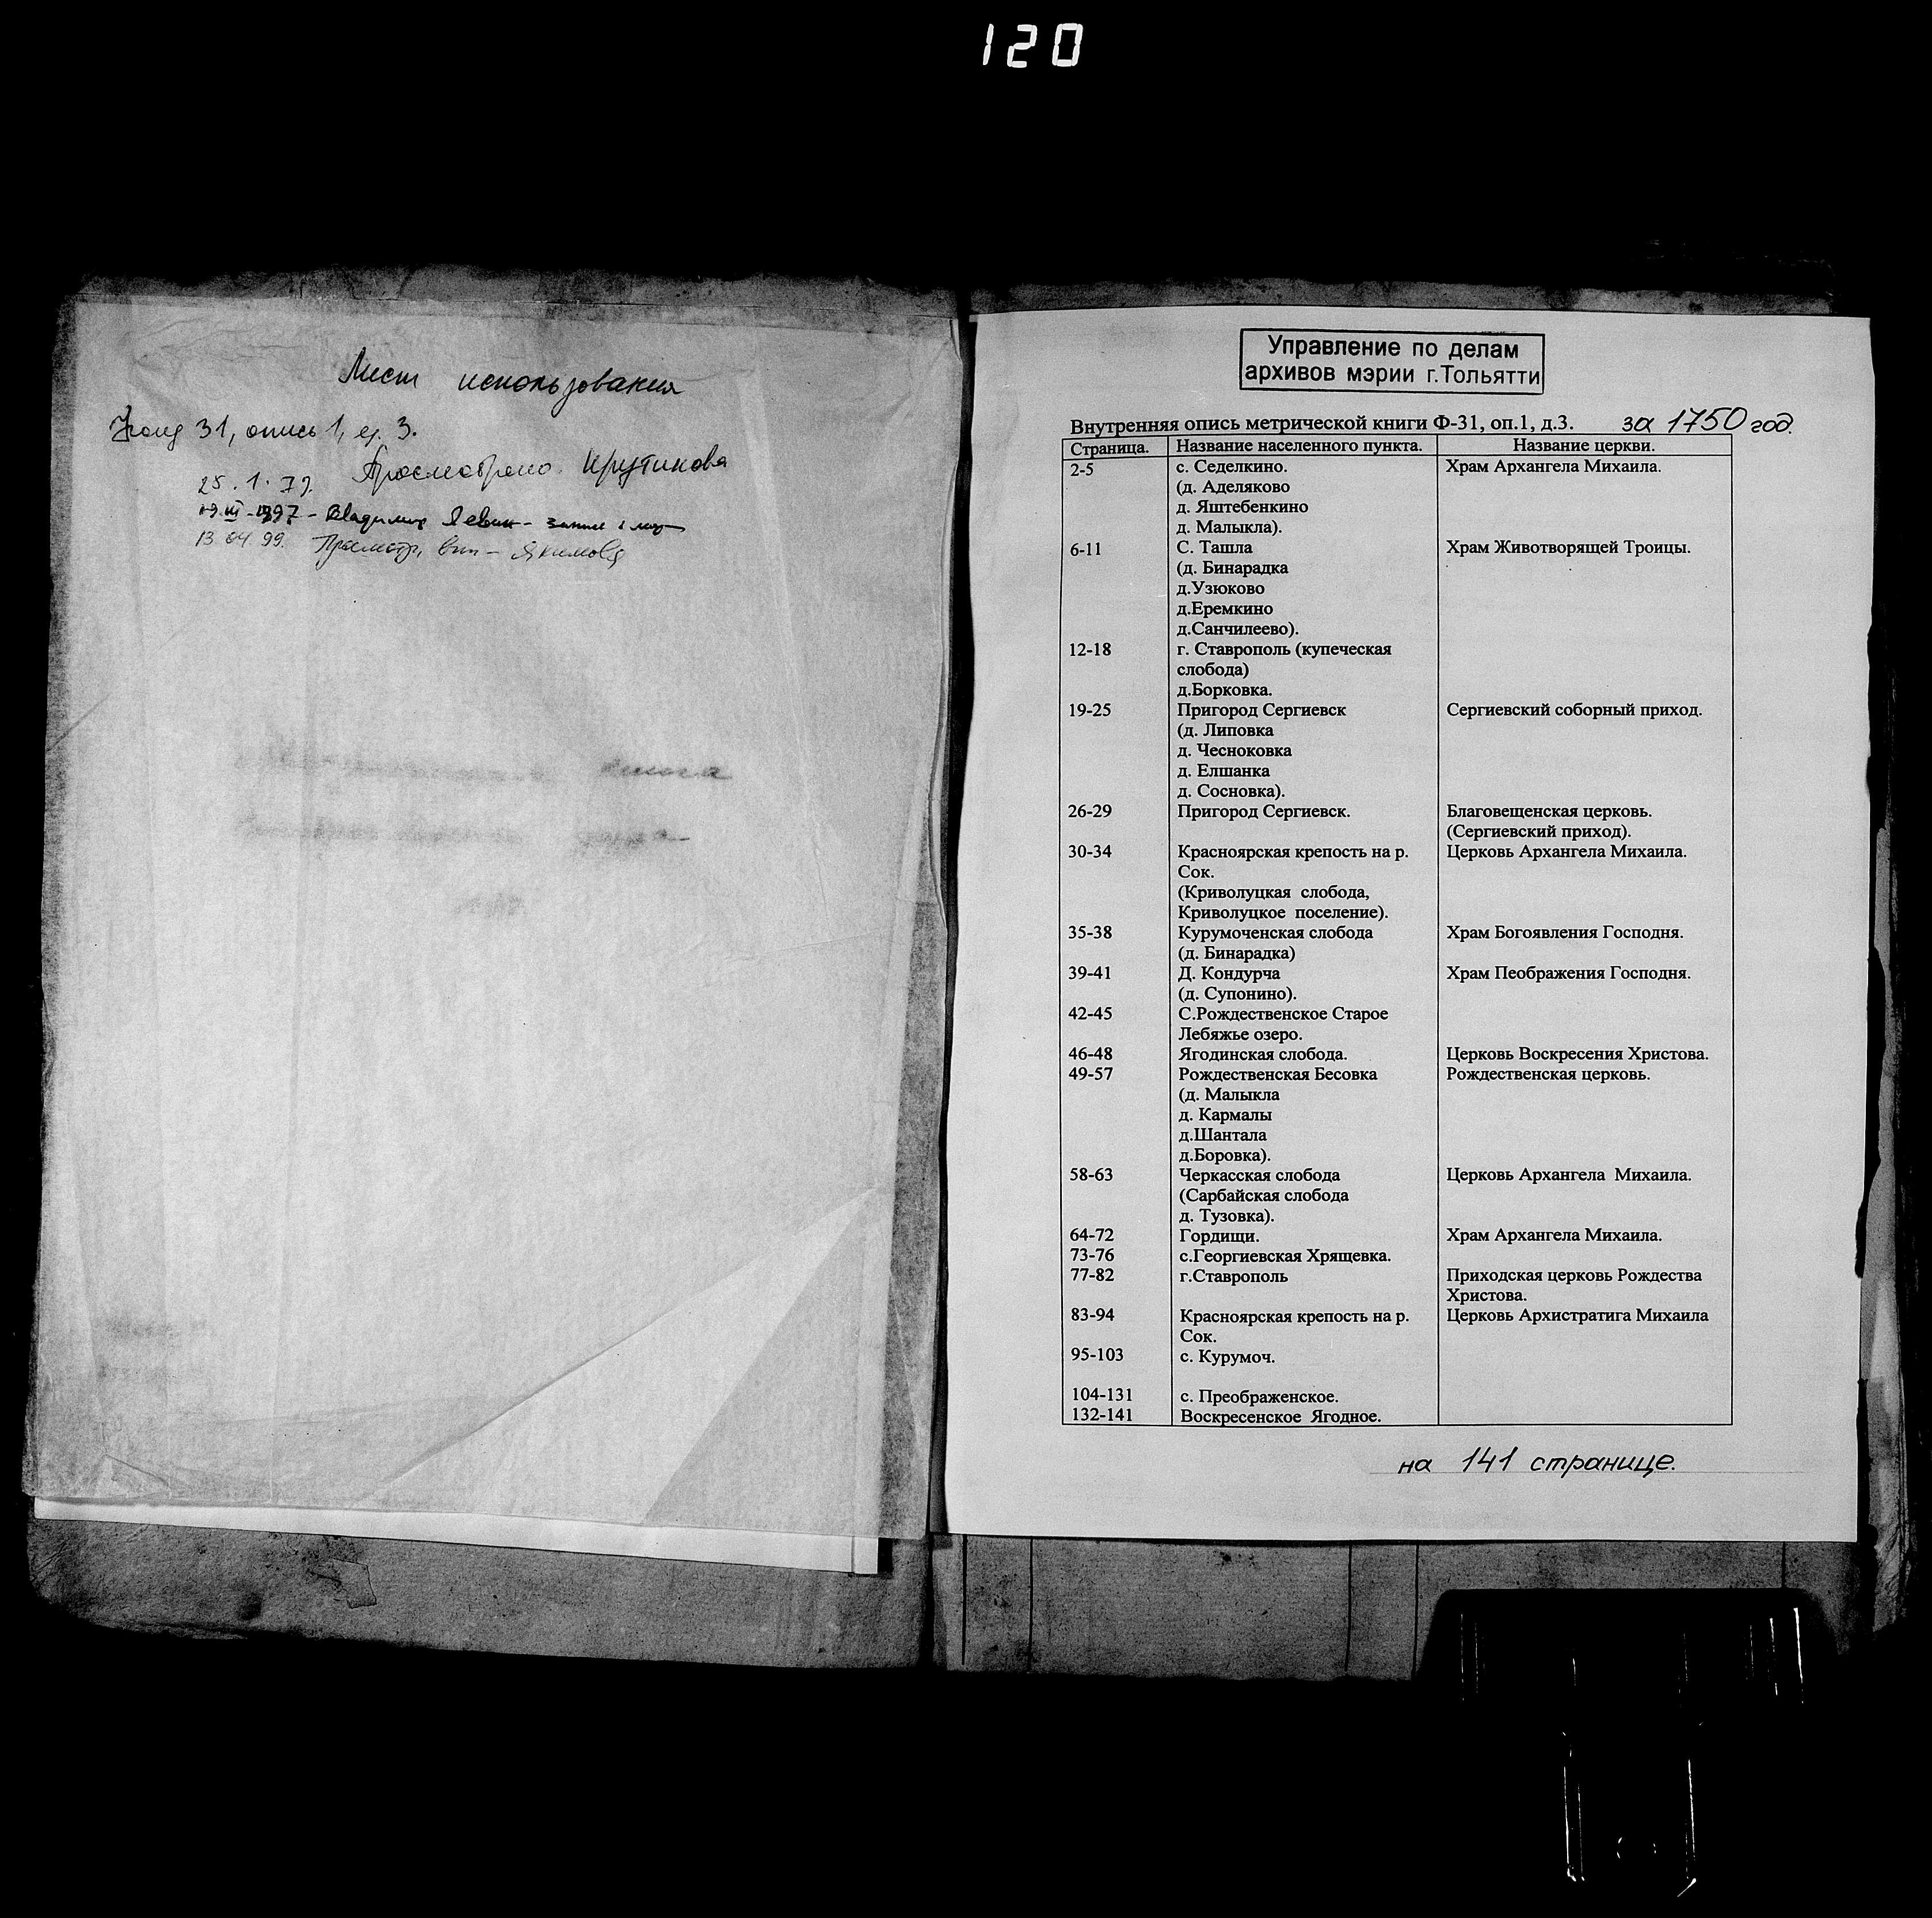 120
Лист использования
Фонд 31, опись 1, ед. 3.
Просмотрено. Крутикова
25.1.79.
19.III-1997 - Владимир Левин -
13.04.99. Просмотр, вып - Якимова
книга
Управление по делам
архивов мэрии г.Тольятти
Внутренняя опись метрической книги Ф-31, оп.1, д.3. за 1750 год.
Страница. Название населенного пункта. Название церкви.
2-5 с. Седелкино. Храм Архангела Михаила.
(д. Аделяково
д. Яштебенкино
д. Малыкла).
6-11 С. Ташла Храм Животворящей Троицы.
(д. Бинарадка
д.Узюково
д.Еремкино
д.Санчилеево).
12-18 г. Ставрополь (купеческая
слобода)
д.Борковка.
19-25 Пригород Сергиевск Сергиевский соборный приход.
(д. Липовка
д. Чесноковка
д. Елшанка
д. Сосновка).
26-29 Пригород Сергиевск. Благовещенская церковь.
(Сергиевский приход).
30-34 Красноярская крепость на р. Церковь Архангела Михаила.
Сок.
(Криволуцкая слобода,
Криволуцкое поселение).
35-38 Курумоченская слобода Храм Богоявления Господня.
(д. Бинарадка)
39-41 Д. Кондурча Храм Пеображения Господня.
(д. Супонино).
42-45 С.Рождественское Старое
Лебяжье озеро.
46-48 Ягодинская слобода. Церковь Воскресения Христова.
49-57 Рождественская Бесовка Рождественская церковь.
(д. Малыкла
д. Кармалы
д.Шантала
д.Боровка).
58-63 Черкасская слобода Церковь Архангела Михаила.
(Сарбайская слобода
д. Тузовка).
64-72 Гордищи. Храм Архангела Михаила.
73-76 с.Георгиевская Хрящевка.
77-82 г.Ставрополь Приходская церковь Рождества
Христова.
83-94 Красноярская крепость на р. Церковь Архистратига Михаила
Сок.
95-103 с. Курумоч.
104-131 с. Преображенское.
132-141 Воскресенское Ягодное.
на 141 странице.